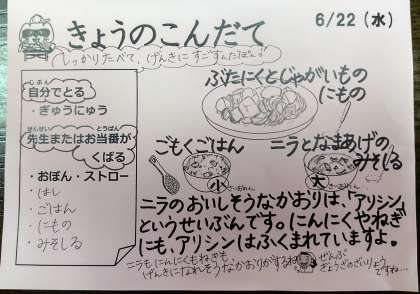 きょうのこんだて
6/22（水）
しっかりたべて、げんきにすごすんだぽん！
自分でとる
じぶん
・ぎゅうにゅう
先生またはお当番が
せんせい
とうばん
くばる
・おぼん・ストロー
・はし
・ごはん
・にもの
・みそしる
ぶたにくとじゃがいもの
にもの
ごもくごはん
ニラとなまあげの
みそしる
小
大
ニラのおいしそうなかおりは、「アリシン」
というせいぶんです。にんにくやねぎ
にも、アリシンはふくまれていますよ。
ニラもにんにくもねぎも、
げんきになれそうなかおりがするね
ぜんぶ
ぎょうざのざいりょう
ですね…